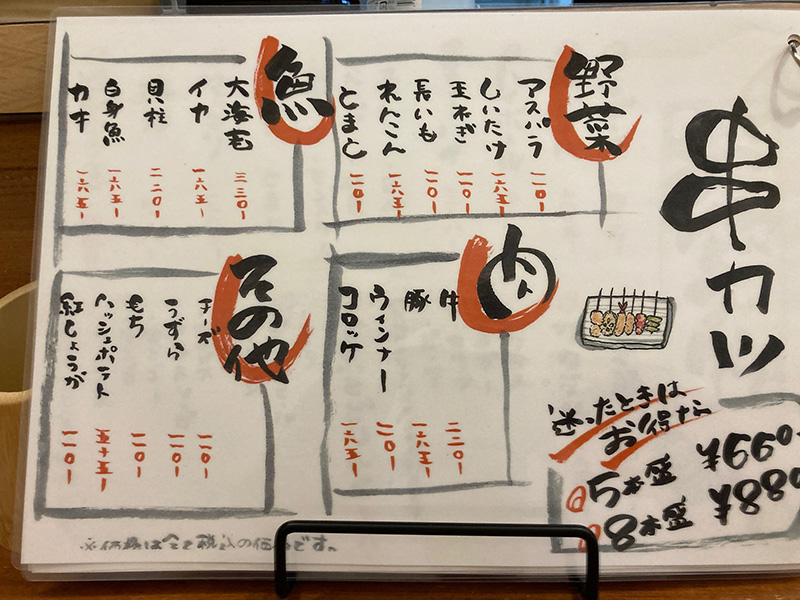 串カツ
野菜
アスパラ 一一〇-
しいたけ 一六五-
玉ねぎ 一一〇-
長いも 一一〇-
れんこん 一六五-
とまと 一一〇-
魚
大海老 三三〇-
イカ 一六五-
貝柱 二二〇-
白身魚 一六五-
カキ 一六五-
肉
牛 二二〇-
豚 一六五-
ウィンナー 一一〇-
コロッケ 一六五-
その他
チーズ 一一〇-
うずら 一一〇-
もち 一一〇-
ハッシュポテト 五十五-
紅しょうが 一一〇-
迷ったときは
お得なら
5本盛 ¥690-
8本盛
※価格は全て税込の価格です。